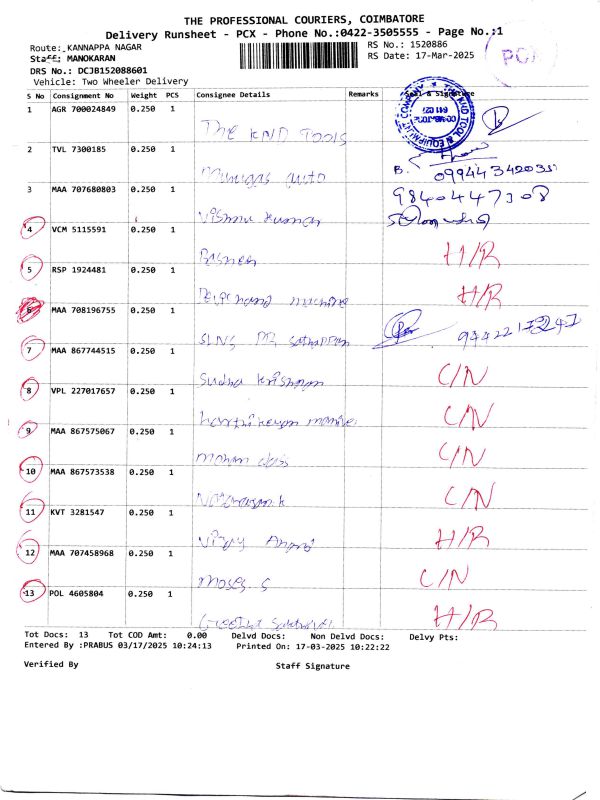 THE PROFESSIONAL COURIERS, COIMBATORE
Delivery Runsheet - PCX - Phone No.:0422-3505555 - Page No.:1
Route: KANNAPPA NAGAR
RS No.: 1520886
Staff: MANOKARAN
RS Date: 17-Mar-2025
PCX
DRS No.: DCJB152088601
Vehicle: Two Wheeler Delivery
S No Consignment No Weight PCS Consignee Details Remarks Seal & Signature
1 AGR 700024849 0.250 1
The KND Tools
2 TVL 7300185 0.250 1
Murugas auto 099443420351
3 MAA 707680803 0.250 1 9840447308
Vishnu Kumar
4 VCM 5115591 0.250 1
H/R
5 RSP 1924481 0.250 1
Devichand machine H/R
6 MAA 708196755 0.250 1
SLNS
7 MAA 867744515 0.250 1
Sudha Krishnan C/N
8 VPL 227017657 0.250 1
C/N
9 MAA 867575067 0.250 1
Mohan dass C/N
10 MAA 867573538 0.250 1
C/N
11 KVT 3281547 0.250 1
Vijay Anand H/R
12 MAA 707458968 0.250 1
Moses. S C/N
13 POL 4605804 0.250 1
H/R
Tot Docs: 13 Tot COD Amt: 0.00 Delvd Docs: Non Delvd Docs: Delvy Pts:
Entered By :PRABUS 03/17/2025 10:24:13 Printed On: 17-03-2025 10:22:22
Verified By Staff Signature